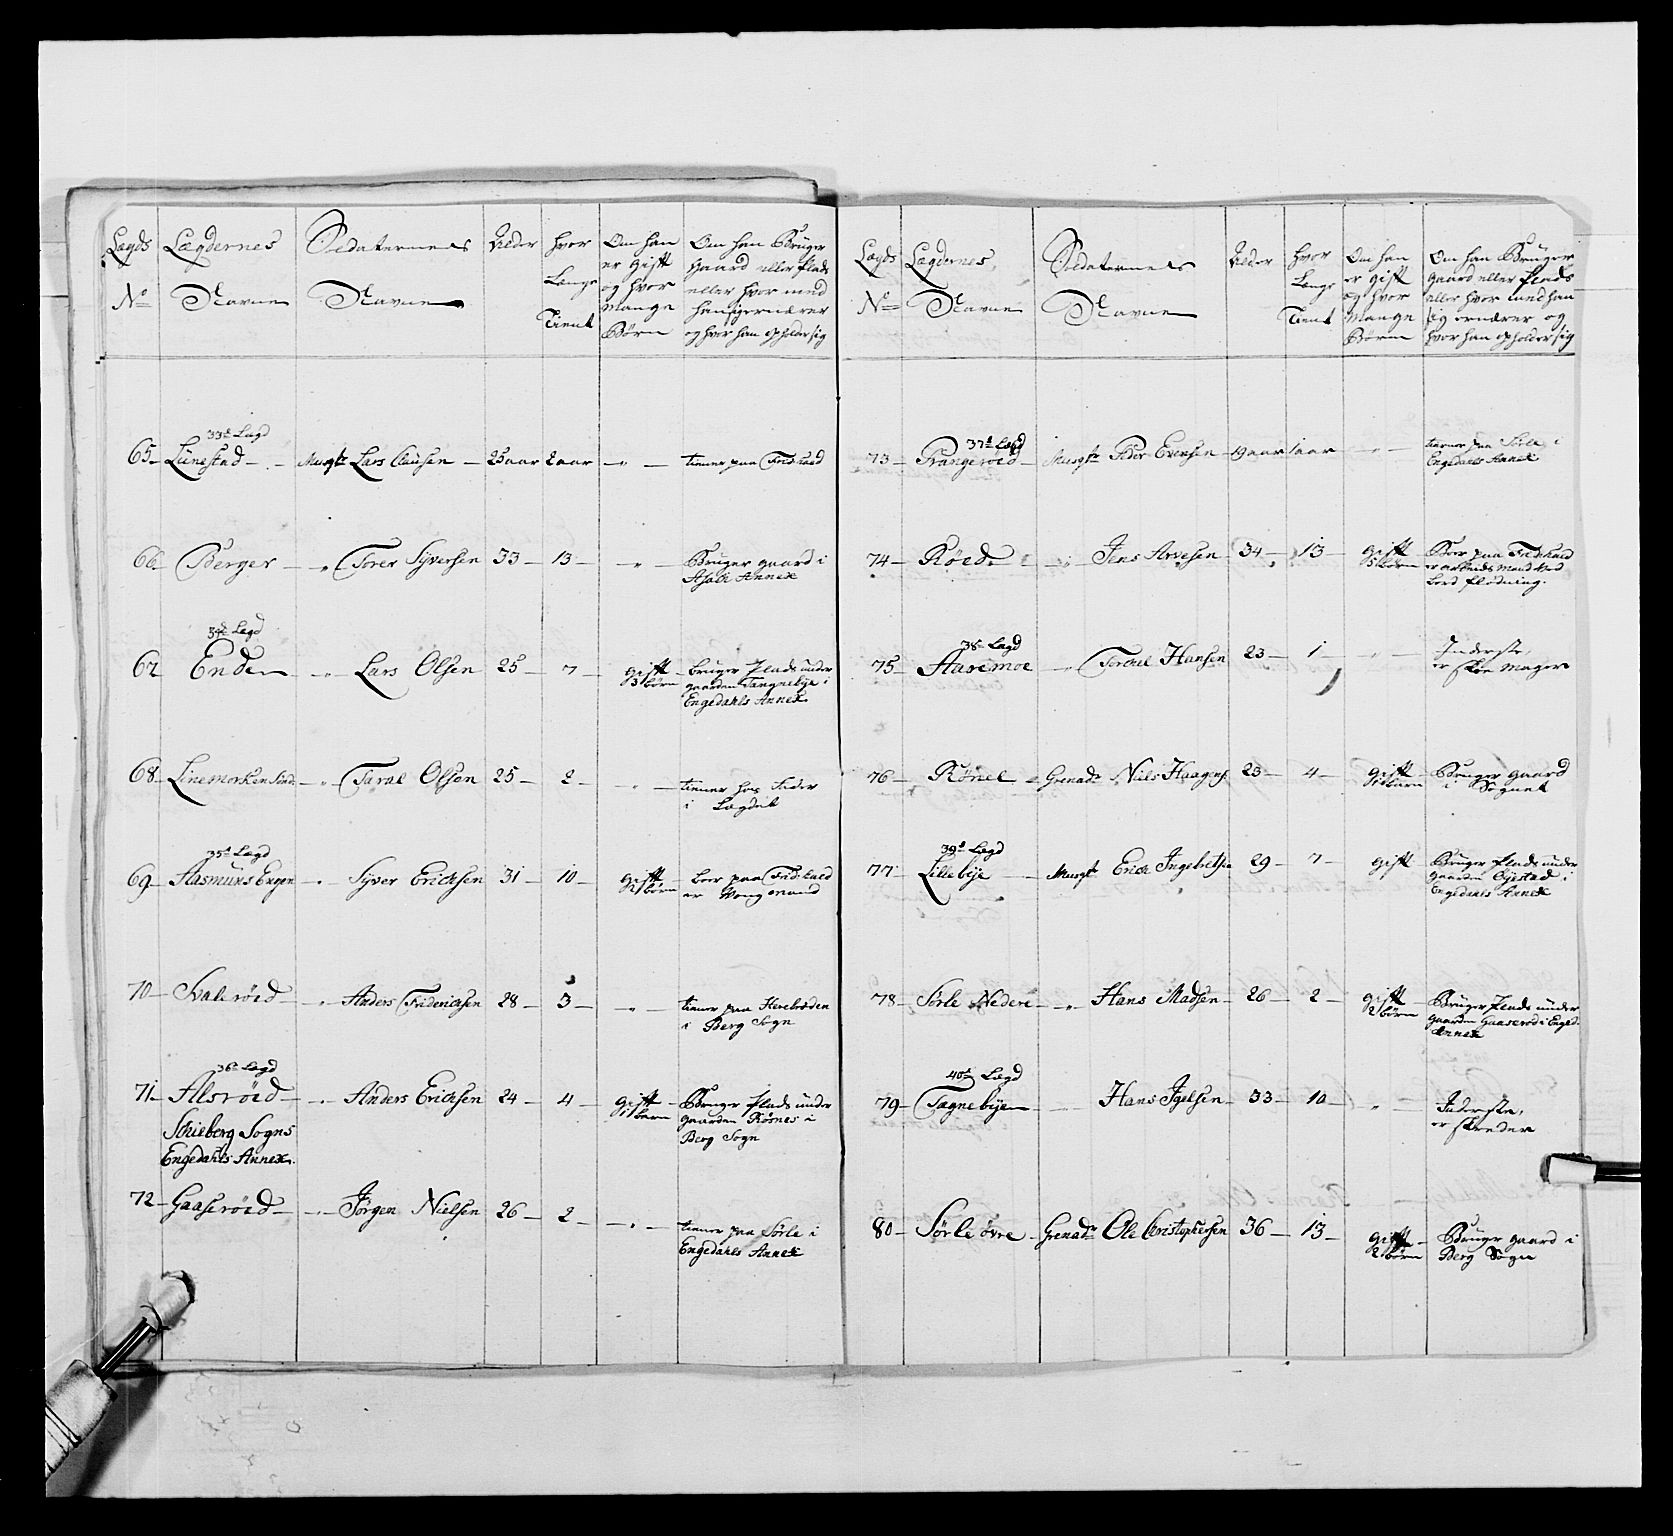 Lægds
No
Lægdernes
Navne
Soldaternes
Navne
Alder
hvor
Længe
Tient
Om han
er gift
og hvor
Mange
Børn
Om han Bruger
Gaard eller Plads
eller hvor med
han sig ernærer
og hvor han opholder sig
33te Lægd
65 Lunestad Musqtr Lars Clausen 25 aar 2 aar " tiener paa Fridrhald
66 Berger " Torer Syversen 33 13 " Bruger gaard i
Asak Annex
34de Lægd
67 Ende " Lars Olsen 25 7 gift
3 børn
bruger Plads under
gaarden Tangnebye i
Engedahls Annex
68 Linemorken " Taral Olsen 25 2 " tiener hos Fader
i Lægdet
35te Lægd
69 Aasmuns Engen " Syver Ericksen 31 10 gift
2 børn
boer paa Fridrhald
er Vong mand
70 Svalerøed " Anders Friderichsen 28 3 " tiener paa Herrebrøden
i Berg Sogn
36te Lægd
71 Alsrøed " Anders Ericksen 24 4 gift
1 barn
Bruger Plads under
gaarden Røsnes i
Berg Sogn
Schieberg Sogns
Engedahls Annex
72 Gaaserøed " Jørgen Nielsen 26 2 " tiener paa Sørle i
Engedahls Annex
Lægds
No
Lægdernes
Navne
Soldaternes
Navne
Alder
hvor
Længe
Tient
Om han
er gift
og hvor
Mange
Børn
Om han Bruger
Gaard eller Plads
eller hvor med han
sig ernærer og
hvor han opholder sig
37te Lægd
73 Prangerøed Musqtr Peder Evensen 19 aar 1 aar " tiener paa Sørle i
Engedahls Annex
74 Røed " Jens Arvesen 34 13 gift
5 børn
Boer paa Fridrhald
er arbeids Mand ved
bord flødning.
38te Lægd
75 Aaremoe " Torkel Hansen 23 1 " Inderste,
er Skoe mager
76 Grenadr Niels Haagens 23 4 gift
1 barn
Bruger gaard
i Sognet
39te Lægd
77 Lillebye Musqtr Erick Ingebretsen 29 7 gift Bruger Plads under
gaarden i
Engedahls Annex
78 Sørle Nedere " Hans Madsen 26 2 gift
2 børn
Bruger Plads under
gaarden Gaaserød i Enged.
Annex
40te Lægd
79 Tagnebyen Hans Igelsen 33 10 " Inderste,
er skreder
80 Sørle øvre Grenadr Ole Christophersen 36 13 gift
2 børn
Bruger gaard i
Berg Sogn